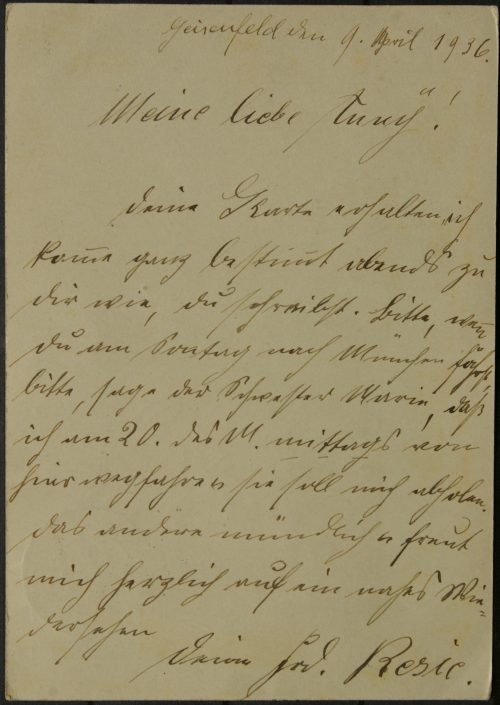 Geisenfeld den 9. April 1936.
Meine liebe
deine Karte erhalten, ich
kom̅e ganz bestim̅t abends zu
dir wie, du schreibst. Bitte, wen̅
du am Sontag nach München fährst
bitte, sage der Schwester Marie, daß
ich am 20. des M. mittags von
hier wegfahre u sie soll mich abholen.
das andere mündlich u freut
mich herzlich auf ein nahes Wie=
dersehen
deine Frd. Resie.